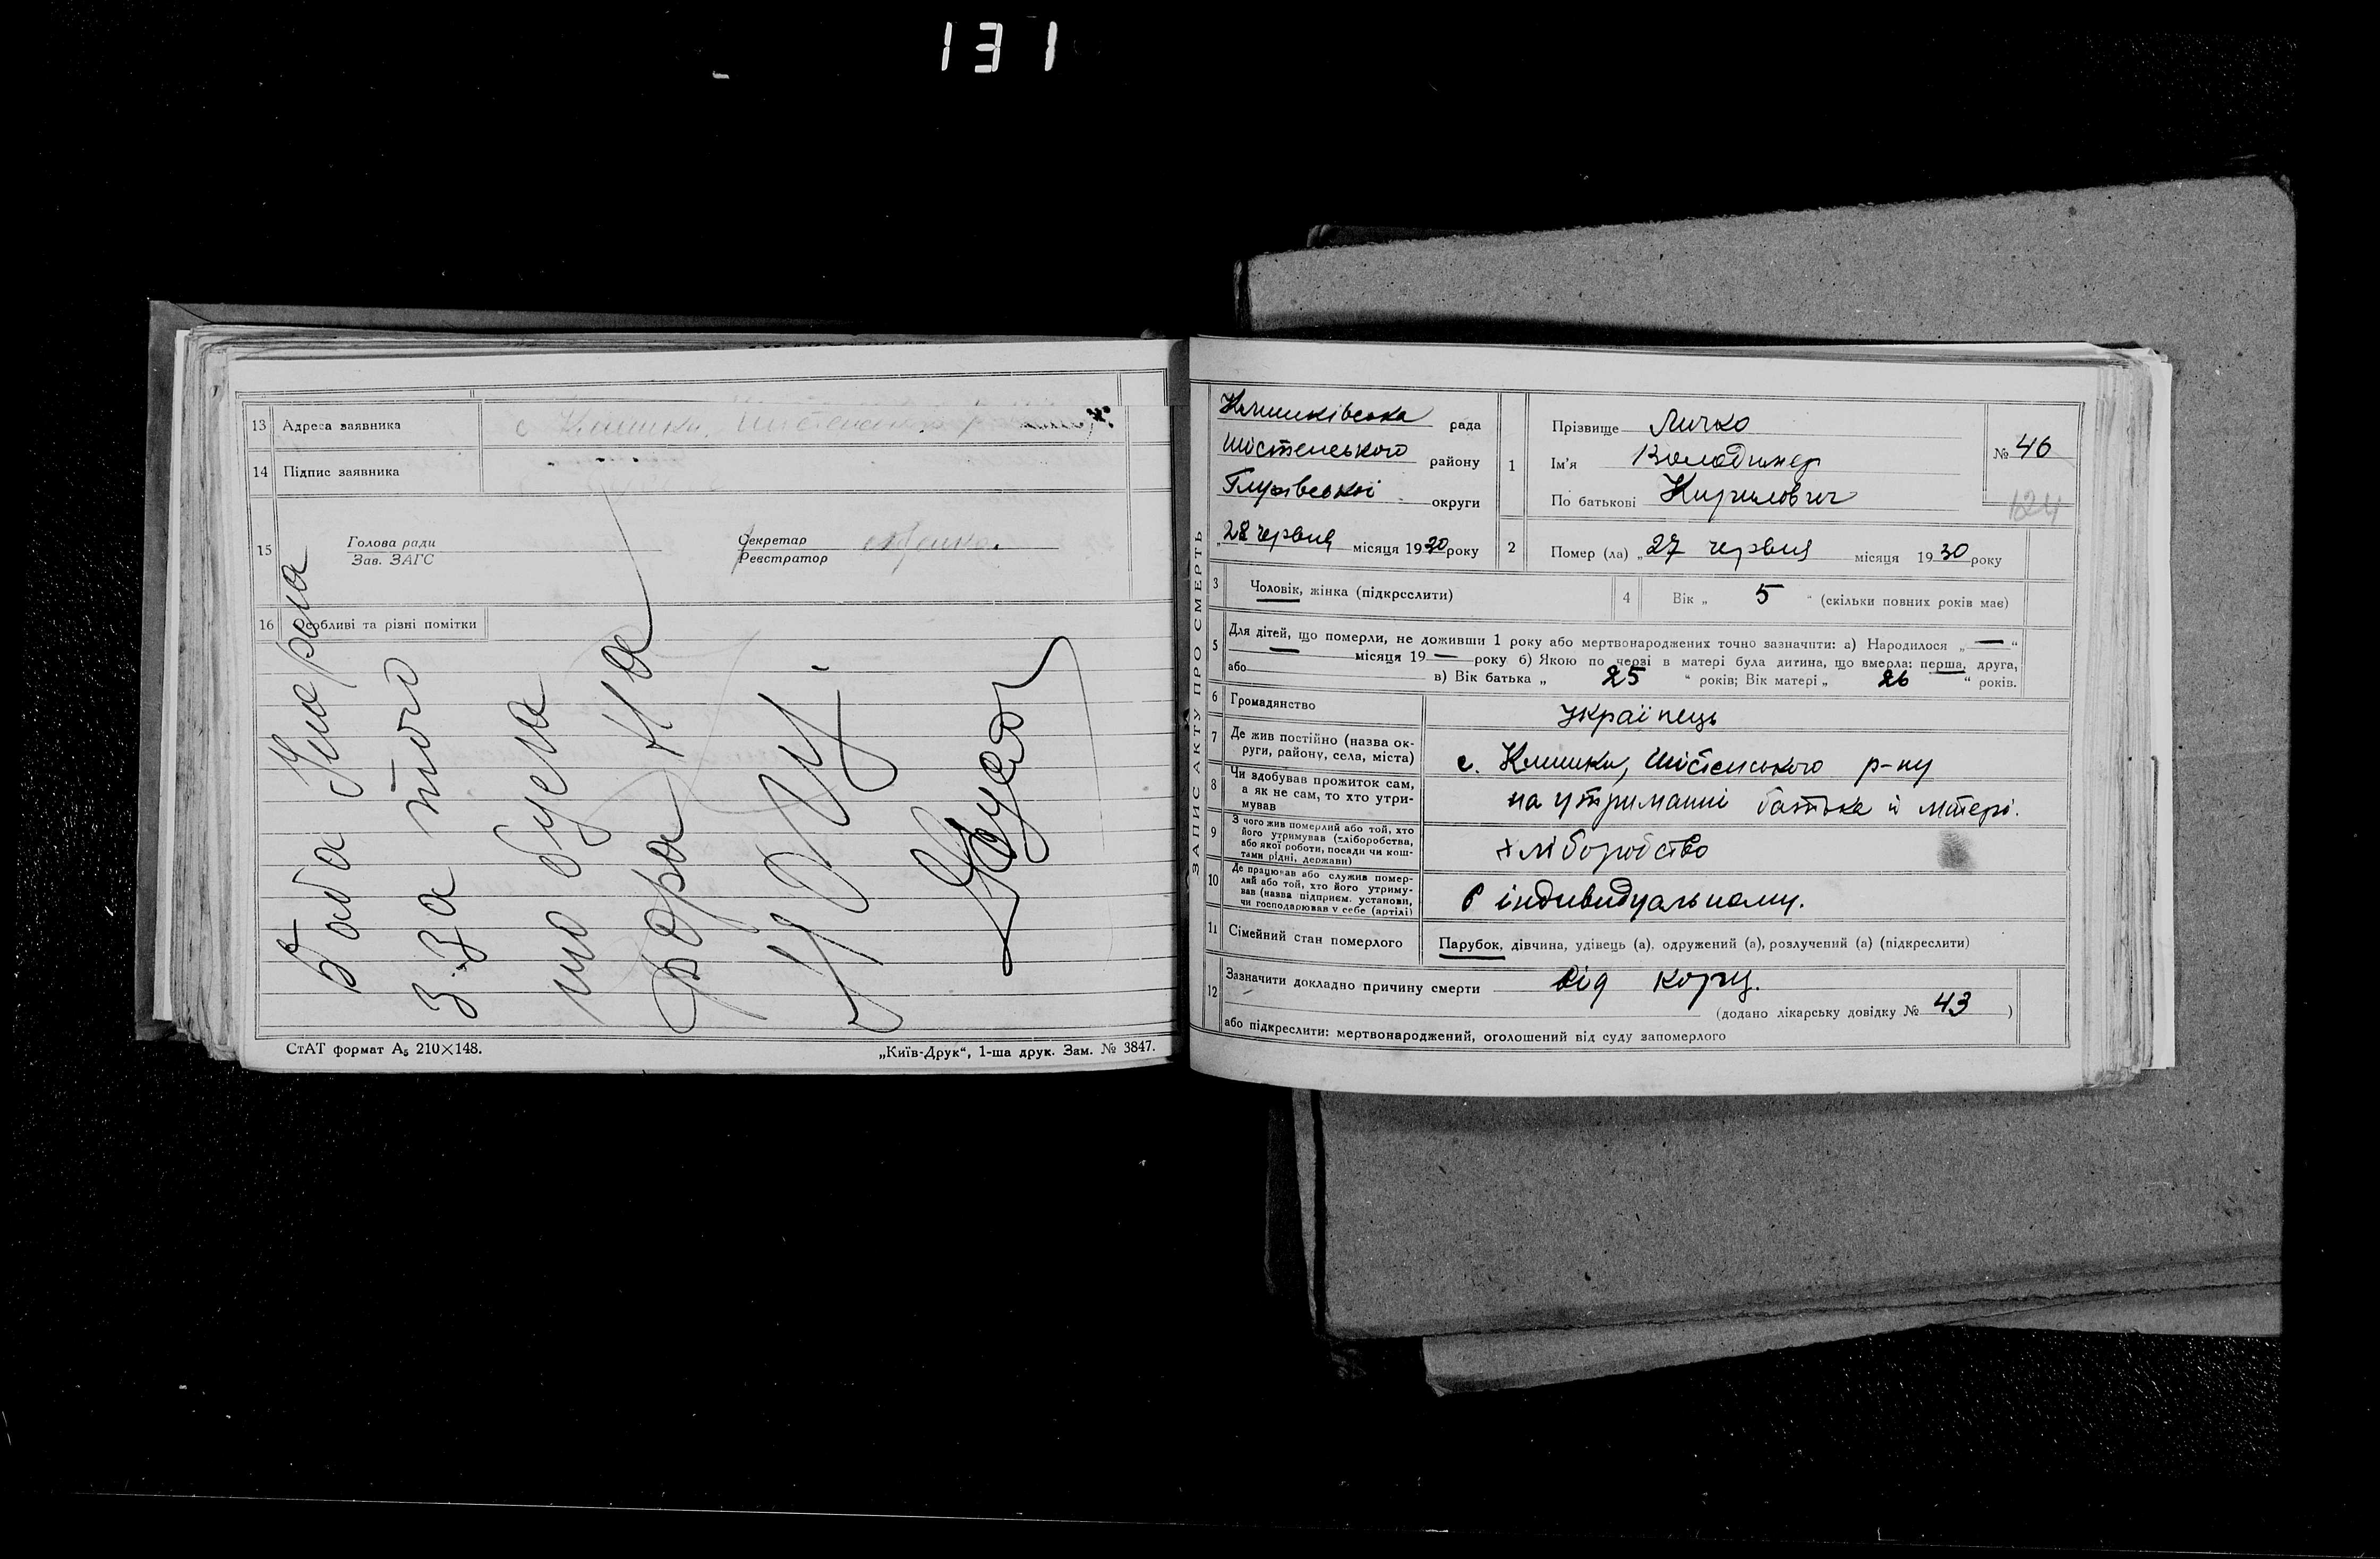 131
13 Адреса заявника с Клишки, Шостенського р
14 Підпис заявника
15 Голова ради
Зав. ЗАГС
Секретар
Реєстратор
16 Особливі та різні помітки
Баба
з-за того
що була
хвора на
СтАТ формат А₅ 210×148.
„Київ-Друк“, 1-ша друк. Зам. № 3847.
ЗАПИС АКТУ ПРО СМЕРТЬ
Клишківська рада
Шостенського району
Глухівської округи
„28 червня місяця 1930 року
1 Прізвище Личко
Ім'я Володимер
По батькові Кирилович
№ 46
124
2 Помер (ла) „27 червня місяця 1930 року
3 Чоловік, жінка (підкреслити)
4 Вік „ 5 “ (скільки повних років має)
5 Для дітей, що померли, не доживши 1 року або мертвонароджених точно зазначити: а) Народилося „ — “
— місяця 19 — року б) Якою по черзі в матері була дитина, що вмерла: перша, друга,
або в) Вік батька „ 25 “ років; Вік матері „ 26 “ років.
6 Громадянство Українець
7 Де жив постійно (назва ок-
руги, району, села, міста) с. Клишки, Шостенського р-ну
8 Чи здобував прожиток сам,
а як не сам, то хто утри-
мував на утриманні батька й матері.
9 З чого жив померлий або той, хто
його утримував (хліборобства,
або якої роботи, посади чи кош-
тами рідні, держави) хліборобство
10 Де працював або служив помер-
лий або той, хто його утриму-
вав (назва підприєм. установи,
чи господарював у себе (артілі) в індивидуальному.
11 Сімейний стан померлого Парубок, дівчина, удівець (а), одружений (а), розлучений (а) (підкреслити)
12 Зазначити докладно причину смерти від кору.
(додано лікарську довідку № 43 )
або підкреслити: мертвонароджений, оголошений від суду запомерлого